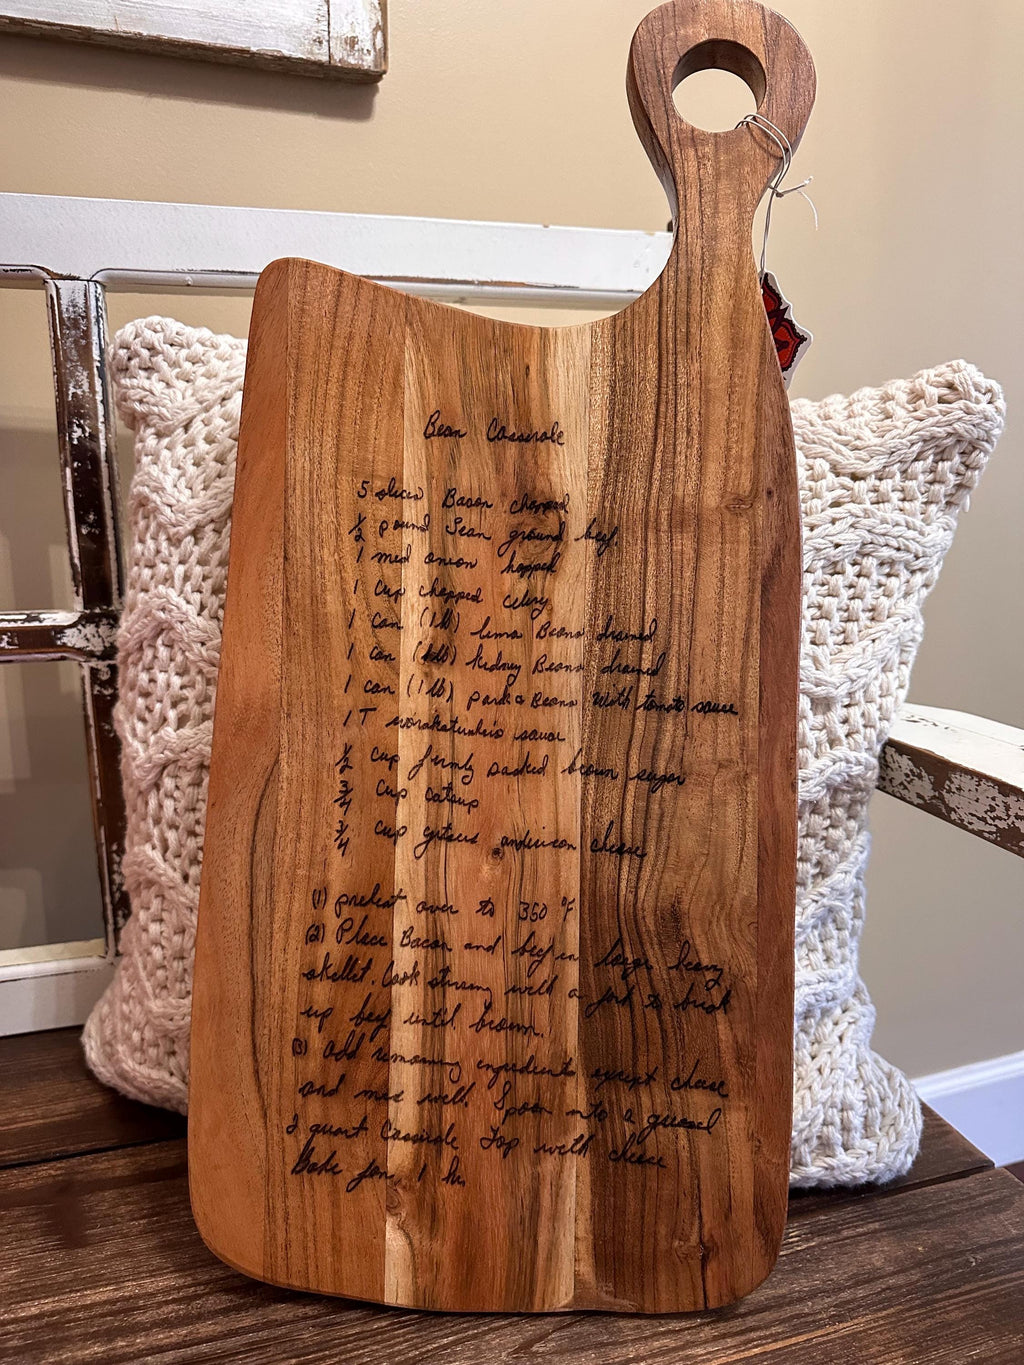 Bean Casserole
5 slices Bacon chopped
1/2 pound Lean ground beef
1 med onion hopped
1 cup chopped celery
1 can (1 lb) lima Beans drained
1 can (1 lb) kidney Beans drained
1 can (1 lb) pork & Beans with tomato sauce
1 T sauce
1/2 cup firmly packed brown sugar
3/4 cup catsup
3/4 cup cheese
(1) preheat oven to 350 °F
(2) Place Bacon and beef in large heavy
skillet. Cook with a fork to break
up beef until brown.
(3) add remaining ingredients except cheese
and mix well. Spoon into a greased
2 quart Casserole Top with cheese
Bake for 1 hr.